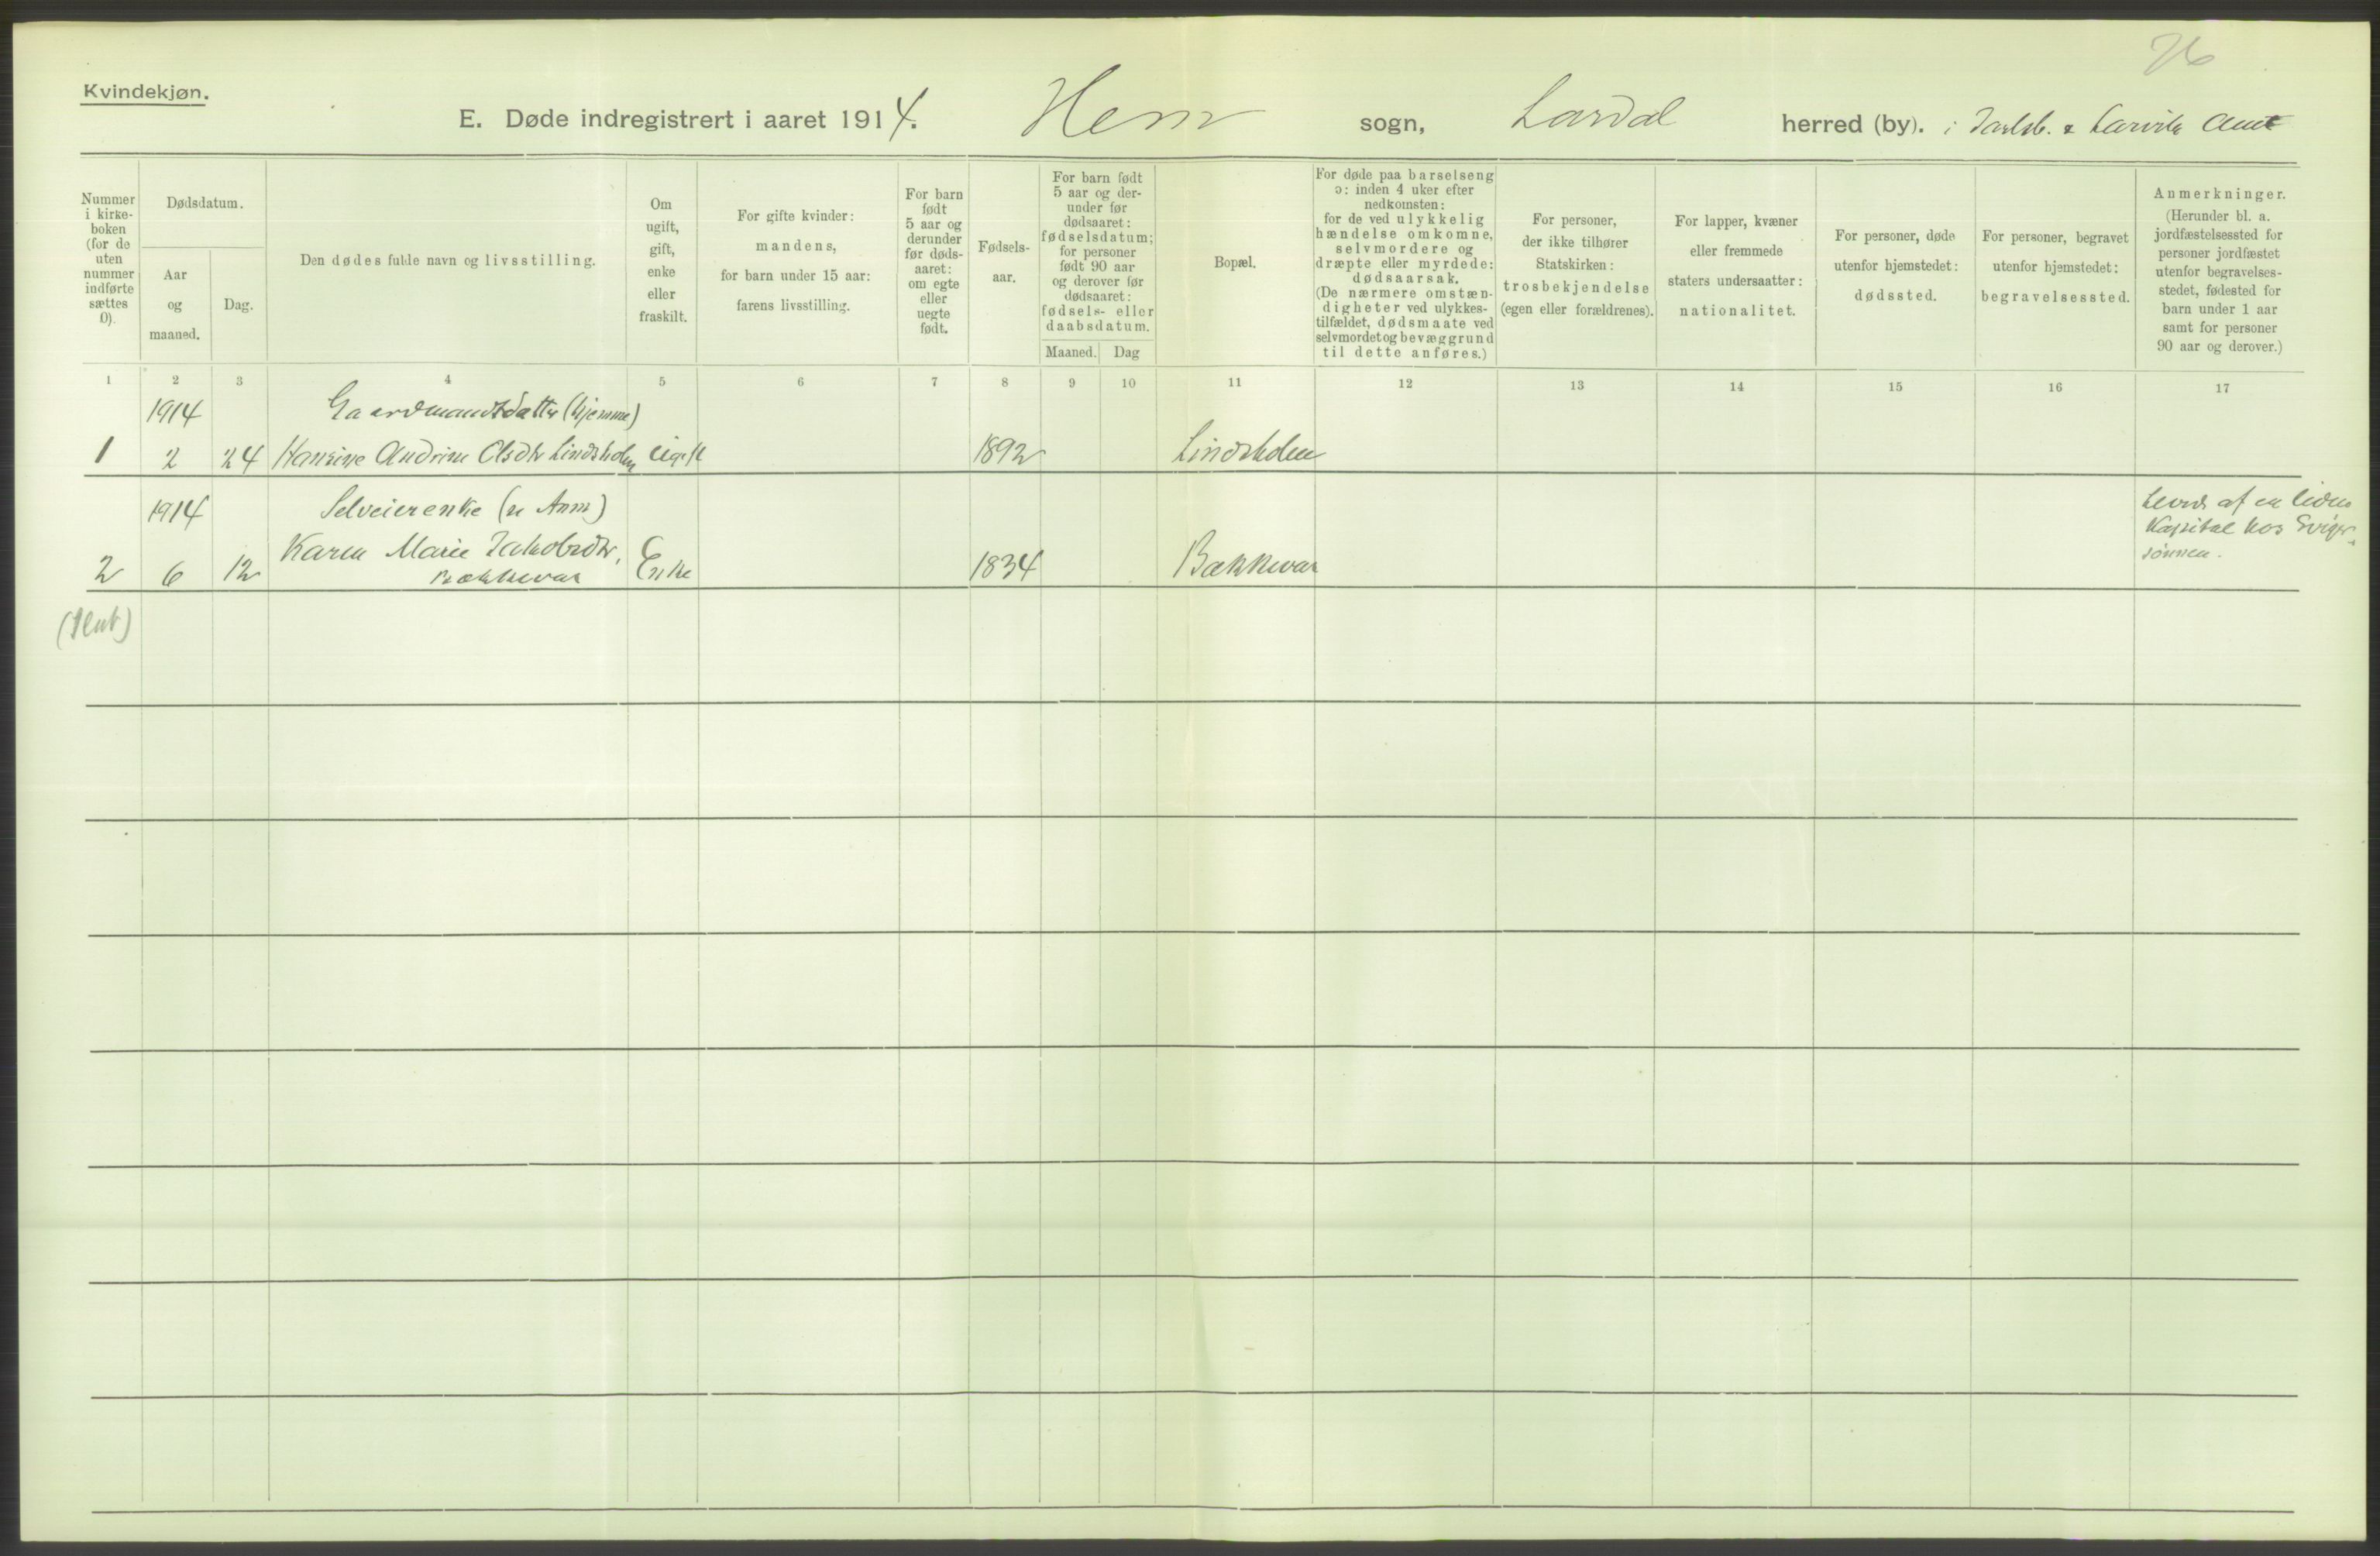 26
Kvindekjøn.
E. Døde indregistrert i aaret 1914. Hem sogn, Lardal herred (by). i Jarlsb. & Larviks Amt
Nummer
i kirke-
boken
(for de
uten
nummer
indførte
sættes
0).
Dødsdatum.
Aar
og
maaned.
Dag.
Den dødes fulde navn og livsstilling.
Om
ugift,
gift,
enke
eller
fraskilt.
For gifte kvinder:
mandens,
for barn under 15 aar:
farens livsstilling.
For barn
født
5 aar og
derunder
før døds-
aaret:
om egte
eller
uegte
født.
Fødsels-
aar.
For barn født
5 aar og der-
under før
dødsaaret:
fødselsdatum;
for personer
født 90 aar
og derover før
dødsaaret:
fødsels- eller
daabsdatum.
Maaned. Dag
Bopæl.
For døde paa barselseng
ɔ: inden 4 uker efter
nedkomsten:
for de ved ulykkelig
hændelse omkomne,
selvmordere og
dræpte eller myrdede:
dødsaarsak.
(De nærmere omstæn-
digheter ved ulykkes-
tilfældet, dødsmaate ved
selvmordet og bevæggrund
til dette anføres.)
For personer,
der ikke tilhører
Statskirken:
trosbekjendelse
(egen eller forældrenes).
For lapper, kvæner
eller fremmede
staters undersaatter:
nationalitet.
For personer, døde
utenfor hjemstedet:
dødssted.
For personer, begravet
utenfor hjemstedet:
begravelsessted.
Anmerkninger.
(Herunder bl. a.
jordfæstelsessted for
personer jordfæstet
utenfor begravelses-
stedet, fødested for
barn under 1 aar
samt for personer
90 aar og derover.)
1 2 3 4 5 6 7 8 9 10 11 12 13 14 15 16 17
1914 Gaardmandsdatter (hjemme)
1 2 24 Hansine Andrine Olsdtr Lindsholm ugift 1892 Lindsholm
1914 Selveierenke (se Anm)
Karen Marie Jakobsdtr,
2 6 12 Bækkevar Enke 1834 Bækkevar
Levede af en liden
Kapital hos Sviger-
sönnen.
(Slut)